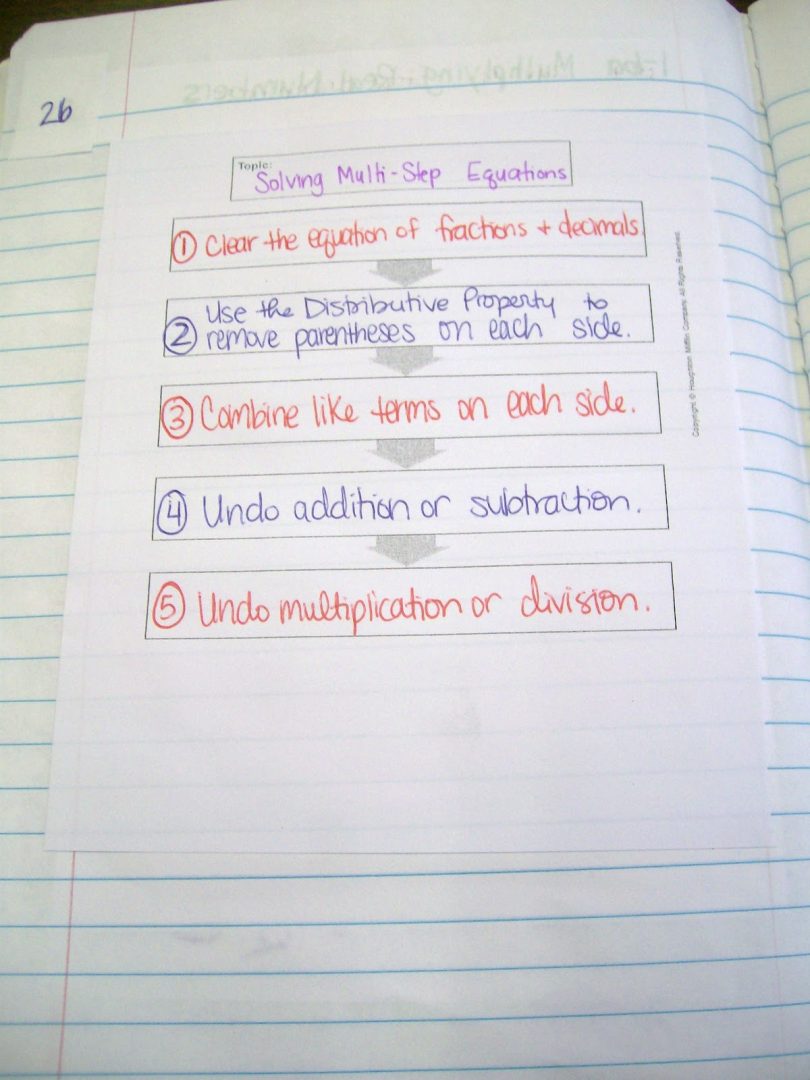 26
Topic:
Solving Multi-Step Equations
① Clear the equation of fractions + decimals.
Use the Distributive Property to
② remove parentheses on each side.
③ Combine like terms on each side.
④ Undo addition or subtraction.
⑤ Undo multiplication or division.
Copyright © Houghton Mifflin Company. All Rights Reserved.